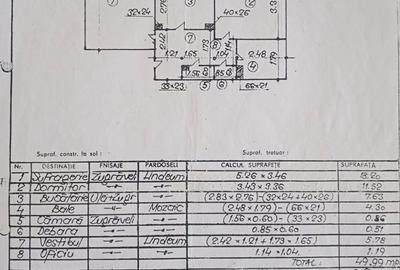 32×24
40×26
2.76
3.3
2.42
1.73
1.14
1.21 1.65
1.04
2.48
1.79
1.56
.85
33×23
66×21
Supraf. constr. la sol :
Supraf. trotuar :
Nr. DESTINAȚIE FNISAJE PARDOSELI CALCUL SUPRAFEȚE SUPRAFAȚA
1 Sufragerie Zugrăveli Linoleum 5.26 × 3.46 18.20
2 Dormitor -"- -"- 3.43 × 3.36 11.52
3 Bucătărie -"- (2.83×2.76)-(32×24+40×26) 7.63
4 Baie -"- Mozaic (2.48×1.79)-(66×21) 4.30
5 Cămară Zugrăveli -"- (1.56×0.60)-(33×23) 0.86
6 Debara -"- -"- 0.85×0.60 0.51
7 Vestibul -"- Linoleum (2.42×1.21+1.73×1.65) 5.78
8 Oficiu -"- -"- 1.14×1.04 1.19
TOTAL: 49.99 mp